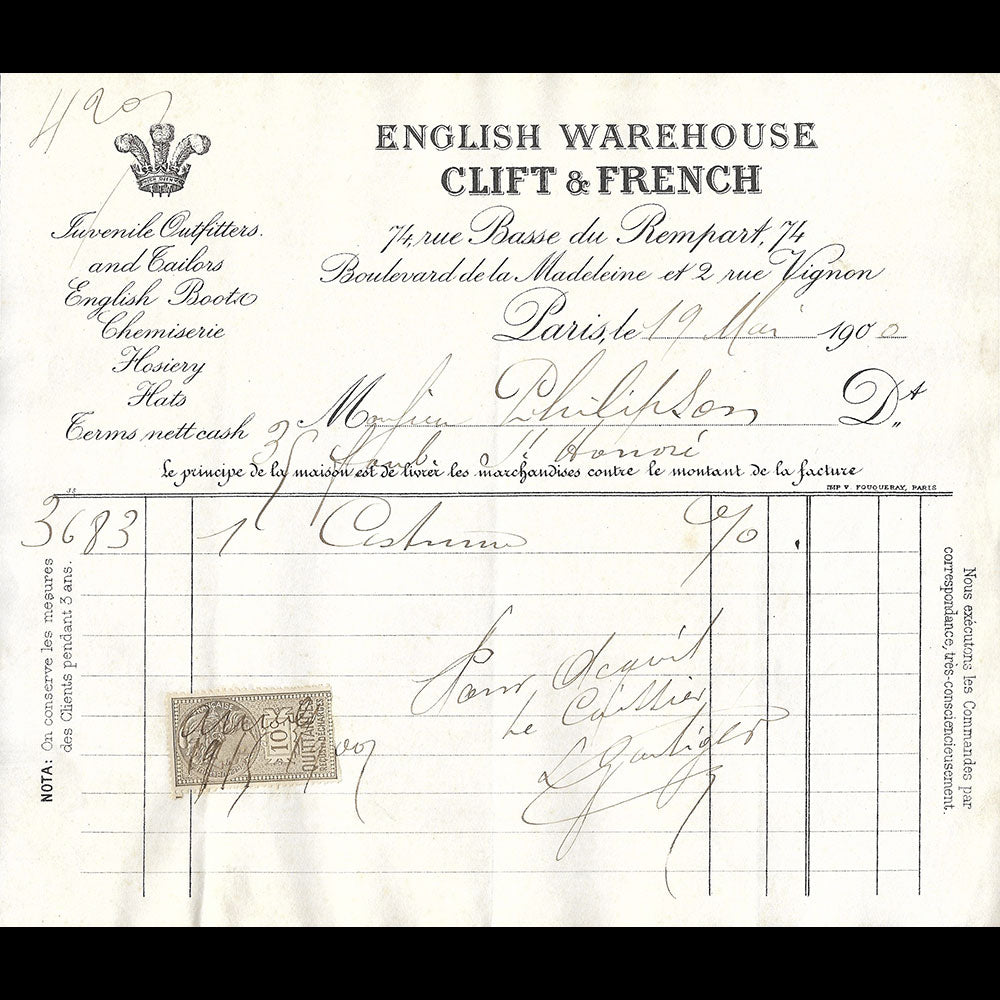 420
ENGLISH WAREHOUSE
CLIFT & FRENCH
74, rue Basse du Rempart, 74
Boulevard de la Madeleine et 2 rue Vignon
Paris, le 19 Mai 1900
Juvenile Outfitters.
and Tailors
English Boots
Chemiserie
Hosiery
Hats
Terms nett cash
Monsieur Philipson Dt
Faub St Honoré
Le principe de la maison est de livrer les marchandises contre le montant de la facture
IMP V. FOUQUERAY, PARIS
3683 1 Costume
NOTA: On conserve les mesures
des Clients pendant 3 ans.
Nous exécutons les Commandes par
correspondance, très-consciencieusement.
Pour Acquit
Le Caissier
10
QUITTANCES